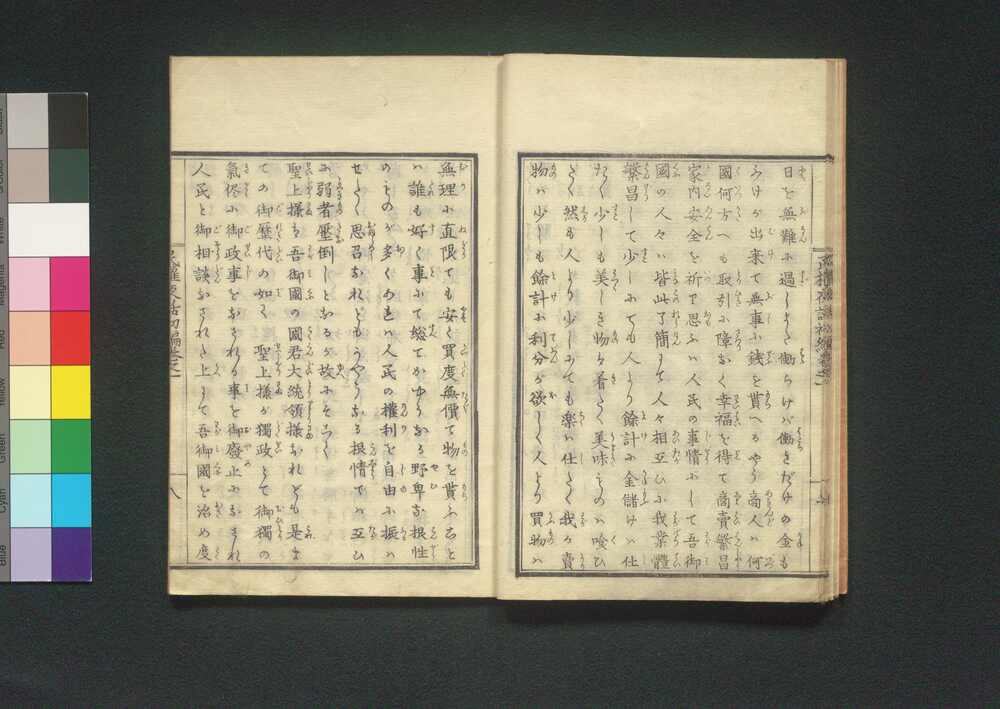 日を無難に過しまた働らけば働きだけの金も
うけが出来て無事に銭を貰へるやう商人ハ何
國何方へも取引に障なく幸福を得て商賣繁昌
家内安全を祈で思ふハ人民の事情にして吾御
國の人々ハ皆此了簡して人々相互ひに我業體
繁昌して少しにても人より餘計に金儲けハ仕
たく少しも美しき物を着たく美味ものハ喰ひ
たく然も人より少しにても楽ハ仕たく我が賣
物ハ少しも餘計に利分が欲しく人より買物ハ
無理に直限ても安く買度無價て物を貰ふこと
ハ誰も好く事にて総てかやうなる野卑な根性
のものが多くあれハ人民の權利を自由に振ハ
せたく思召なれどもかやうなる根情でハ互ひ
に弱者壓倒しとなるが故にそこで
聖上様も吾御國の國君大統領様なれども是ま
ての御歴代の如く 聖上様が獨政とて御獨の
氣侭に御政事をなされる事を御廢止になされ
人民と御相談なされた上にて吾御國を治め度
八